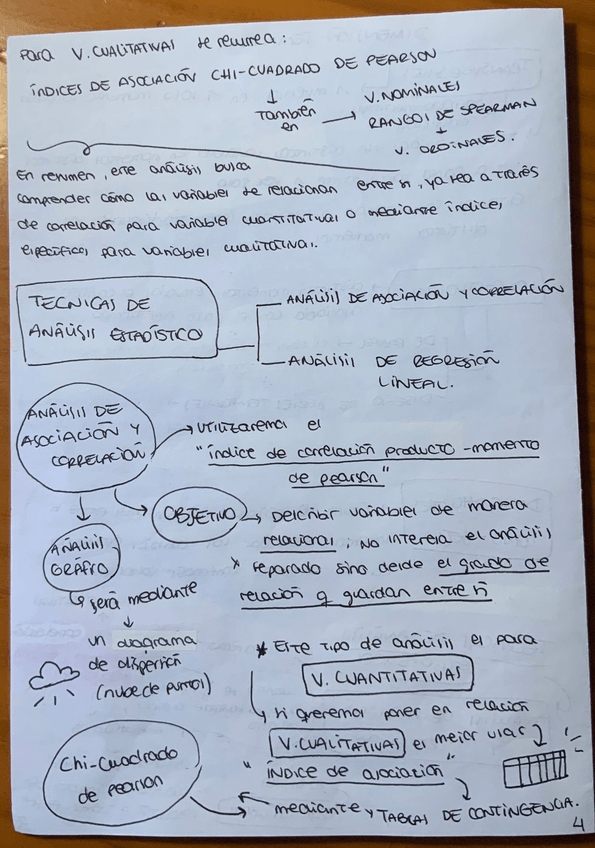 Para V. CUALITATIVAS se recurrea:
ÍNDICES DE ASOCIACIÓN CHI-CUADRADO DE PEARSON
También en → V. NOMINALES
RANGOS DE SPEARMAN
V. ORDINALES.
En resumen, este análisis busca
comprender cómo las variables se relacionan entre si, ya sea a través
de correlación para variables cuantitativas o mediante índices
específicos para variables cualitativas.
TECNICAS DE
ANÁLISIS ESTADÍSTICO
ANÁLISIS DE ASOCIACIÓN Y CORRELACIÓN
ANÁLISIS DE REGRESIÓN
LINEAL.
ANÁLISIS DE
ASOCIACIÓN Y
CORRELACIÓN
→ UTILIZAREMOS el
"índice de correlación producto-momento
de pearson"
OBJETIVO → Describir variables de manera
relacional, no interesa el análisis
* separado sino desde el grado de
relación q guardan entre si
ANÁLISIS
GRÁFICO
será mediante
un diagrama
de dispersión
(nube de puntos)
* Este tipo de análisis es para
V. CUANTITATIVAS
y si queremos poner en relación
V. CUALITATIVAS es mejor usar
"ÍNDICE de asociación"
Chi-Cuadrado
de pearson
mediante y TABLAS DE CONTINGENCIA.
4